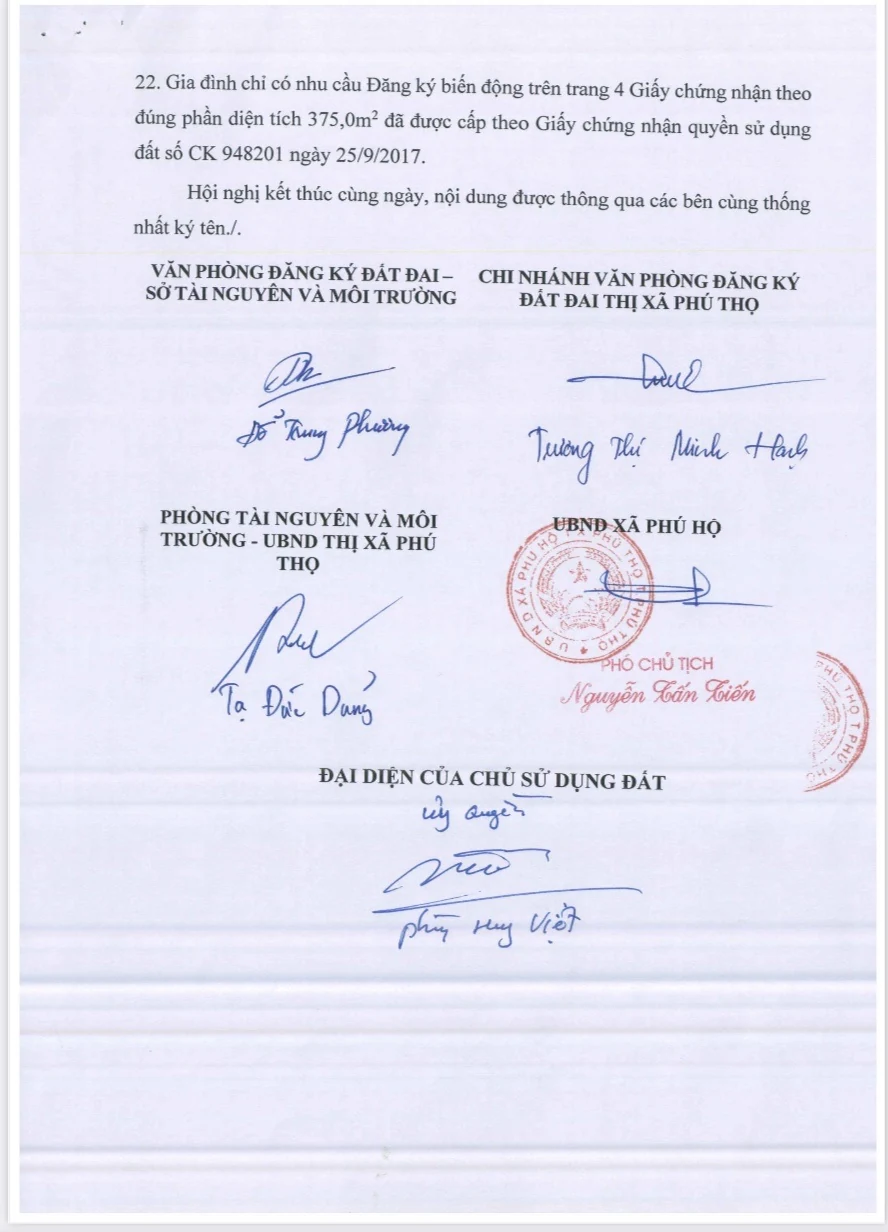 22. Gia đình chỉ có nhu cầu Đăng ký biến động trên trang 4 Giấy chứng nhận theo
đúng phần diện tích 375,0m² đã được cấp theo Giấy chứng nhận quyền sử dụng
đất số CK 948201 ngày 25/9/2017.
Hội nghị kết thúc cùng ngày, nội dung được thông qua các bên cùng thống
nhất ký tên./.
VĂN PHÒNG ĐĂNG KÝ ĐẤT ĐAI –
SỞ TÀI NGUYÊN VÀ MÔI TRƯỜNG
Đỗ Trung Phương
CHI NHÁNH VĂN PHÒNG ĐĂNG KÝ
ĐẤT ĐAI THỊ XÃ PHÚ THỌ
Trương Thị Minh Hạnh
PHÒNG TÀI NGUYÊN VÀ MÔI
TRƯỜNG - UBND THỊ XÃ PHÚ
THỌ
Tạ Đức Dũng
UBND XÃ PHÚ HỘ
U.B.N.D XÃ PHÚ HỘ T.X PHÚ THỌ T.PHÚ THỌ
PHÓ CHỦ TỊCH
Nguyễn Tấn Tiến
PHÚ THỌ T.PHÚ THỌ
ĐẠI DIỆN CỦA CHỦ SỬ DỤNG ĐẤT
Uỷ quyền
Phùng Huy Việt